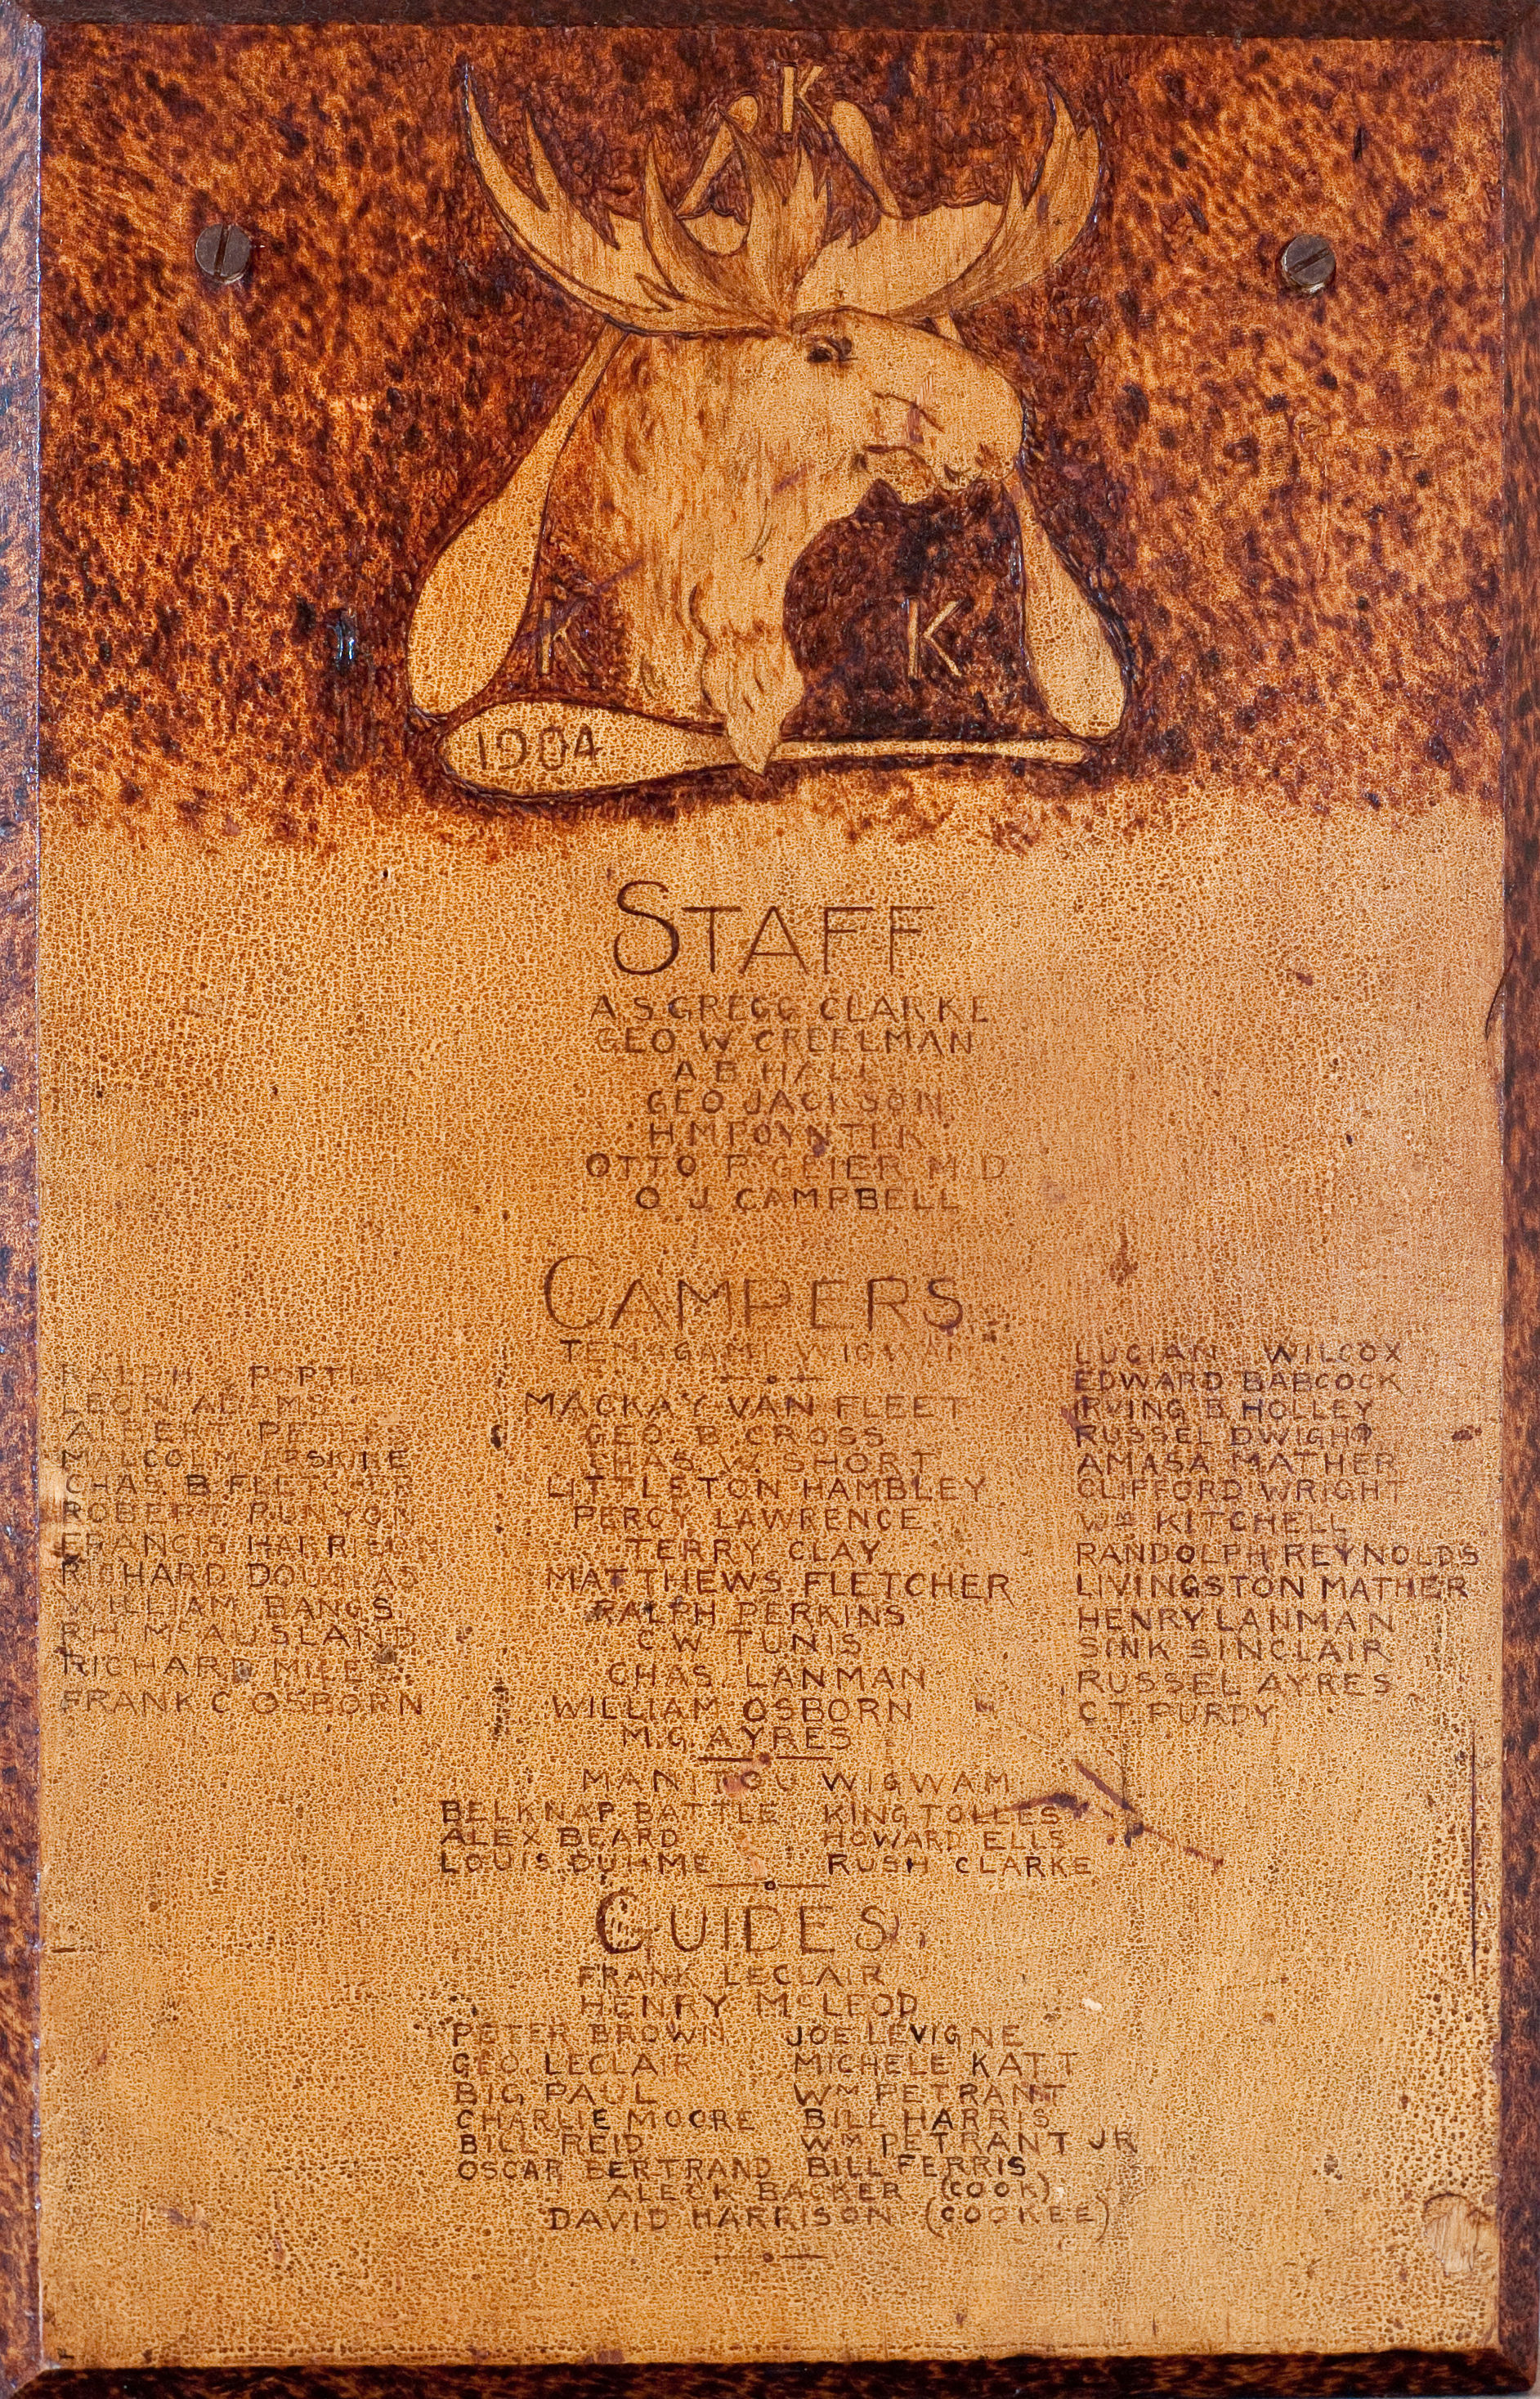 K
K K
1904
STAFF
A. S. GREGG CLARKE
GEO W CREELMAN
A. B. HALL
GEO JACKSON
H M POYNTER
OTTO P. GEIER M.D
O J CAMPBELL
CAMPERS
TEMAGAMI WIGWAM
RALPH PORTER
LEON ADAMS
ALBERT PETERS
MALCOLM ERSKINE
CHAS. B. FLETCHER
ROBERT RUNYON
FRANCIS HARRISON
RICHARD DOUGLAS
WILLIAM BANGS
R.H. McAUSLAND
RICHARD MILES
FRANK C OSBORN
MACKAY VAN FLEET
GEO. B. CROSS
CHAS. W. SHORT
LITTLETON HAMBLEY
PERCY LAWRENCE
TERRY CLAY
MATTHEWS FLETCHER
RALPH PERKINS
C.W. TUNIS
CHAS. LANMAN
WILLIAM OSBORN
M.G. AYRES
LUCIAN WILCOX
EDWARD BABCOCK
IRVING B. HOLLEY
RUSSEL DWIGHT
AMASA MATHER
CLIFFORD WRIGHT
WM KITCHELL
RANDOLPH REYNOLDS
LIVINGSTON MATHER
HENRY LANMAN
SINK SINCLAIR
RUSSEL AYRES
C.T. PURDY
MANITOU WIGWAM
BELKNAP BATTLE KING TOLLES
ALEX BEARD HOWARD ELLS
LOUIS DUHME RUSH CLARKE
GUIDES
FRANK LECLAIR
HENRY McLEOD
PETER BROWN JOE LEVIGNE
GEO. LECLAIR MICHELE KATT
BIG PAUL WM PETRANT
CHARLIE MOORE BILL HARRIS
BILL REID WM PETRANT JR
OSCAR BERTRAND BILL FERRIS
ALECK BACKER (COOK)
DAVID HARRISON (COOKEE)